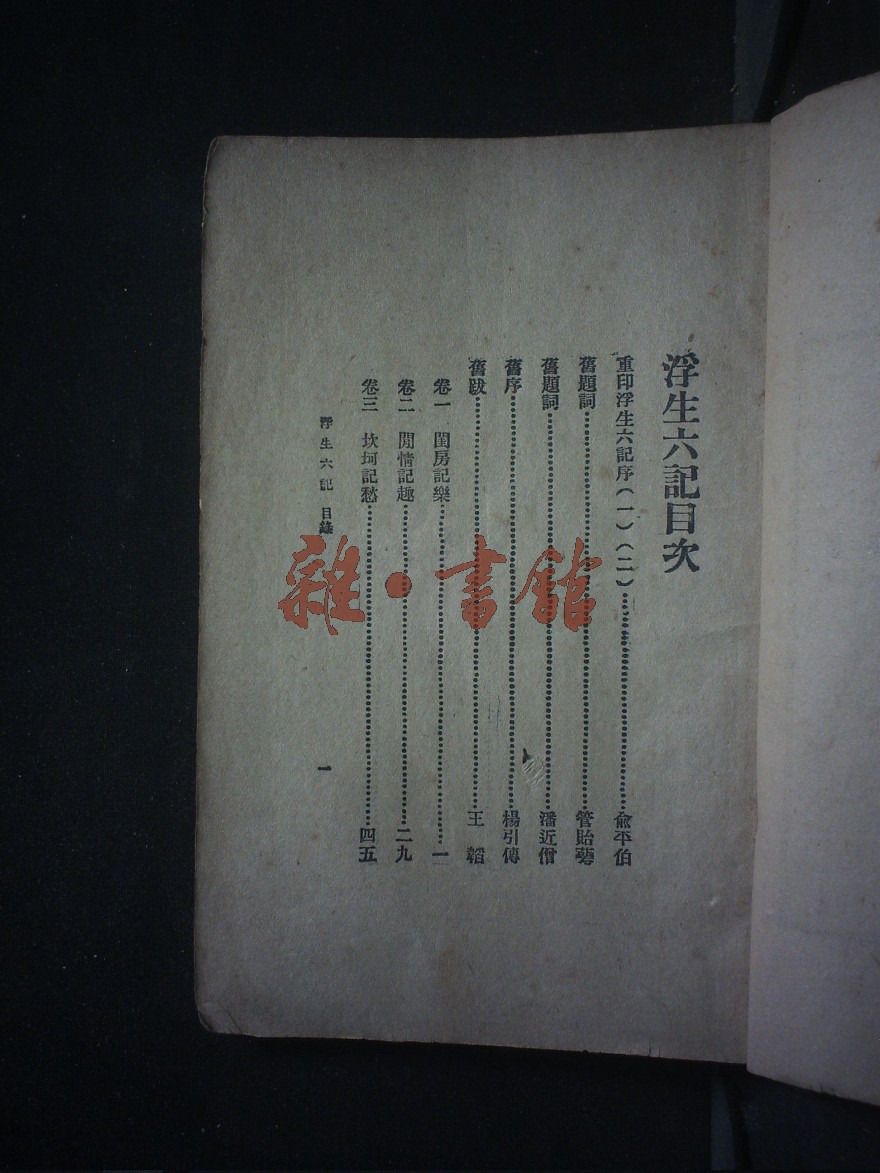 浮生六記目次
重印浮生六記序(一)(二)……俞平伯
舊題詞……管貽葄
舊題詞……潘近僧
舊序……楊引傳
舊跋……王韜
卷一 閨房記樂……一
卷二 閒情記趣……二九
卷三 坎坷記愁……四五
浮生六記 目錄
一
雜·書館